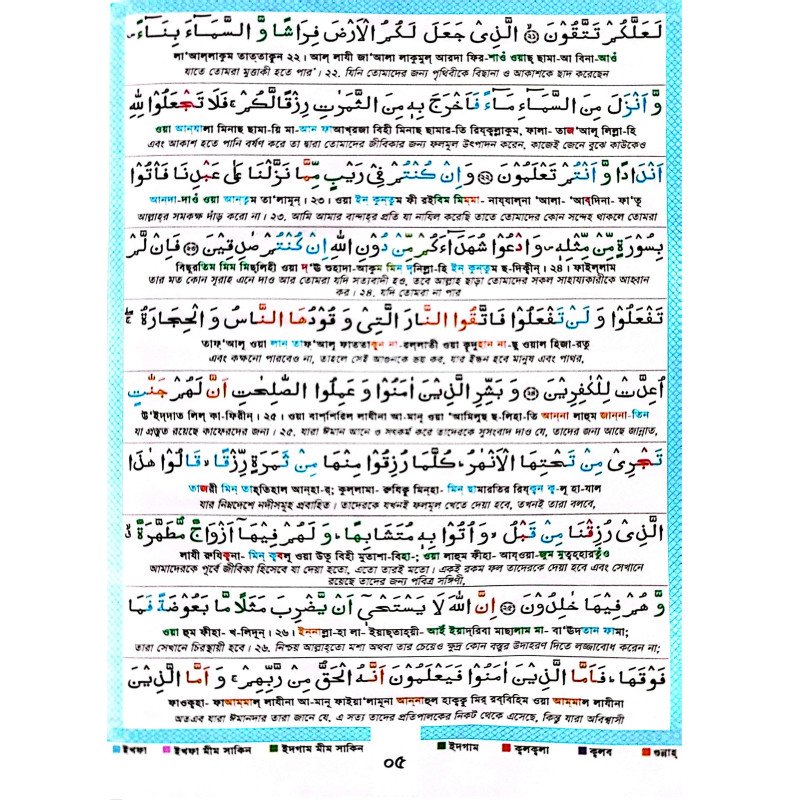 لَعَلَّكُمْ تَتَّقُوْنَ ۝٢١ الَّذِيْ جَعَلَ لَكُمُ الْاَرْضَ فِرَاشًا وَّ السَّمَآءَ بِنَآءً ۪
লা'আল্লাকুম তাত্তাকুন ২২। আল্ লাযী জা'আলা লাকুমুল্ আরদা ফির-শাওঁ ওয়াছ্ ছামা-আ বিনা-আওঁ
যাতে তোমরা মুত্তাকী হতে পার'। ২২. যিনি তোমাদের জন্য পৃথিবীকে বিছানা ও আকাশকে ছাদ করেছেন
وَّ اَنْزَلَ مِنَ السَّمَآءِ مَآءً فَاَخْرَجَ بِهٖ مِنَ الثَّمَرٰتِ رِزْقًا لَّكُمْ ۚ فَلَا تَجْعَلُوْا لِلّٰهِ
ওয়া আন্‌যালা মিনাছ ছামা-য়ি মা-আন ফাআখ্‌রজা বিহী মিনাছ ছামার-তি রিয্‌কুল্লাকুম, ফালা- তাজ্'আলূ লিল্লা-হি
এবং আকাশ হতে পানি বর্ষণ করে তা দ্বারা তোমাদের জীবিকার জন্য ফলমূল উৎপাদন করেন. কাজেই জেনে বুঝে কাউকেও
اَنْدَادًا وَّ اَنْتُمْ تَعْلَمُوْنَ ۝٢٢ وَ اِنْ كُنْتُمْ فِيْ رَيْبٍ مِّمَّا نَزَّلْنَا عَلٰى عَبْدِنَا فَاْتُوْا
আনদা-দাওঁ ওয়া আনতুম তা'লামূন্। ২৩। ওয়া ইন্ কুনতুম ফী রইবিম মিম্‌মা- নায্‌যাল্‌না 'আলা- 'আব্‌দিনা- ফা'তূ
আল্লাহ্‌র সমকক্ষ দাঁড় করো না। ২৩. আমি আমার বান্দাহ্‌র প্রতি যা নাযিল করেছি তাতে তোমাদের কোন সন্দেহ থাকলে তোমরা
بِسُوْرَةٍ مِّنْ مِّثْلِهٖ ۪ وَ ادْعُوْا شُهَدَآءَكُمْ مِّنْ دُوْنِ اللّٰهِ اِنْ كُنْتُمْ صٰدِقِيْنَ ۝٢٣ فَاِنْ لَّمْ
বিছুরতিম মিম মিছ্‌লিহী ওয়া দ্'ঊ শুহাদা-আকুম মিন দূনিল্লা-হি ইন্ কুনতুম ছ-দিক্বীন্। ২৪। ফাইল্‌লাম
তার মত কোন সূরাহ এনে দাও আর তোমরা যদি সত্যবাদী হও, তবে আল্লাহ ছাড়া তোমাদের সকল সাহায্যকারীকে আহ্বান
কর। ২৪. যদি তোমরা না পার
تَفْعَلُوْا وَ لَنْ تَفْعَلُوْا فَاتَّقُوا النَّارَ الَّتِيْ وَ قُوْدُهَا النَّاسُ وَ الْحِجَارَةُ ۖۚ
তাফ্'আলূ ওয়া লান তাফ্'আলূ ফাততাকুন না-রল্লাতী ওয়া কূদুহান না-ছু ওয়াল হিজা-রতু
এবং কক্ষনো পারবেও না, তাহলে সেই আগুনকে ভয় কর, যার ইন্ধন হবে মানুষ এবং পাথর,
اُعِدَّتْ لِلْكٰفِرِيْنَ ۝٢٤ وَ بَشِّرِ الَّذِيْنَ اٰمَنُوْا وَ عَمِلُوا الصّٰلِحٰتِ اَنَّ لَهُمْ جَنّٰتٍ
উ'ইদ্দাত লিল্ কা-ফিরীন্। ২৫। ওয়া বাশ্‌শিরিল লাযীনা আ-মানূ ওয়া 'আমিলুছ ছ-লিহা-তি আন্‌না লাহুম জান্‌না-তিন
যা প্রস্তুত রয়েছে কাফেরদের জন্য। ২৫. যারা ঈমান আনে ও সৎকর্ম করে তাদেরকে সুসংবাদ দাও যে, তাদের জন্য আছে জান্নাত,
تَجْرِيْ مِنْ تَحْتِهَا الْاَنْهٰرُ ؕ كُلَّمَا رُزِقُوْا مِنْهَا مِنْ ثَمَرَةٍ رِّزْقًا ۙ قَالُوْا هٰذَا
তাজ্‌রী মিন্ তাহ্‌তিহাল আন্‌হা-র্; কুল্‌লামা- রুযিকু মিন্‌হা- মিন্ ছামারতির রিয্‌কুন কূ-লূ হা-যাল
যার নিম্নদেশে নদীসমূহ প্রবাহিত। তাদেরকে যখনই ফলমূল খেতে দেয়া হবে, তখনই তারা বলবে,
الَّذِيْ رُزِقْنَا مِنْ قَبْلُ ۙ وَ اُتُوْا بِهٖ مُتَشَابِهًا ؕ وَ لَهُمْ فِيْهَاۤ اَزْوَاجٌ مُّطَهَّرَةٌ ۙ
লাযী রুযিকুনা- মিন্ কুবলূ ওয়া উতূ বিহী মুতাশা-বিহা-; ওয়া লাহুম ফীহা- আয্‌ওয়া-জুম মুত্বহ্‌হারতুওঁ
আমাদেরকে পূর্বে জীবিকা হিসেবে যা দেয়া হতো, এতো তারই মতো। একই রকম ফল তাদেরকে দেয়া হবে এবং সেখানে
রয়েছে তাদের জন্য পবিত্র সঙ্গিনী,
وَّ هُمْ فِيْهَا خٰلِدُوْنَ ۝٢٥ اِنَّ اللّٰهَ لَا يَسْتَحْيٖۤ اَنْ يَّضْرِبَ مَثَلًا مَّا بَعُوْضَةً فَمَا
ওয়া হুম ফীহা- খ-লিদূন্। ২৬। ইন্‌নাল্লা-হা লা- ইয়াছ্‌তাহ্‌য়ী- আইঁ ইয়াদ্‌রিবা মাছালাম মা- বা'ঊদতান ফামা;
তারা সেখানে চিরস্থায়ী হবে। ২৬. নিশ্চয় আল্লাহ্‌তো মশা অথবা তার চেয়েও ক্ষুদ্র কোন বস্তুর উদাহরণ দিতে লজ্জাবোধ করেন না;
فَوْقَهَا ؕ فَاَمَّا الَّذِيْنَ اٰمَنُوْا فَيَعْلَمُوْنَ اَنَّهُ الْحَقُّ مِنْ رَّبِّهِمْ ۚ وَ اَمَّا الَّذِيْنَ
ফাওকুহা- ফাআম্‌মাল্ লাযীনা আ-মানূ ফাইয়া'লামূনা আন্‌নাহুল হাক্‌কু মির্ রব্‌বিহিম ওয়া আম্‌মাল লাযীনা
অতএব যারা ঈমানদার তারা জানে যে, এ সত্য তাদের প্রতিপালকের নিকট থেকে এসেছে, কিন্তু যারা অবিশ্বাসী
ইখফা ইখফা মীম সাকিন ইদগাম মীম সাকিন ইদগাম ক্বলক্বলা ক্বলব গুন্নাহ্
০৫